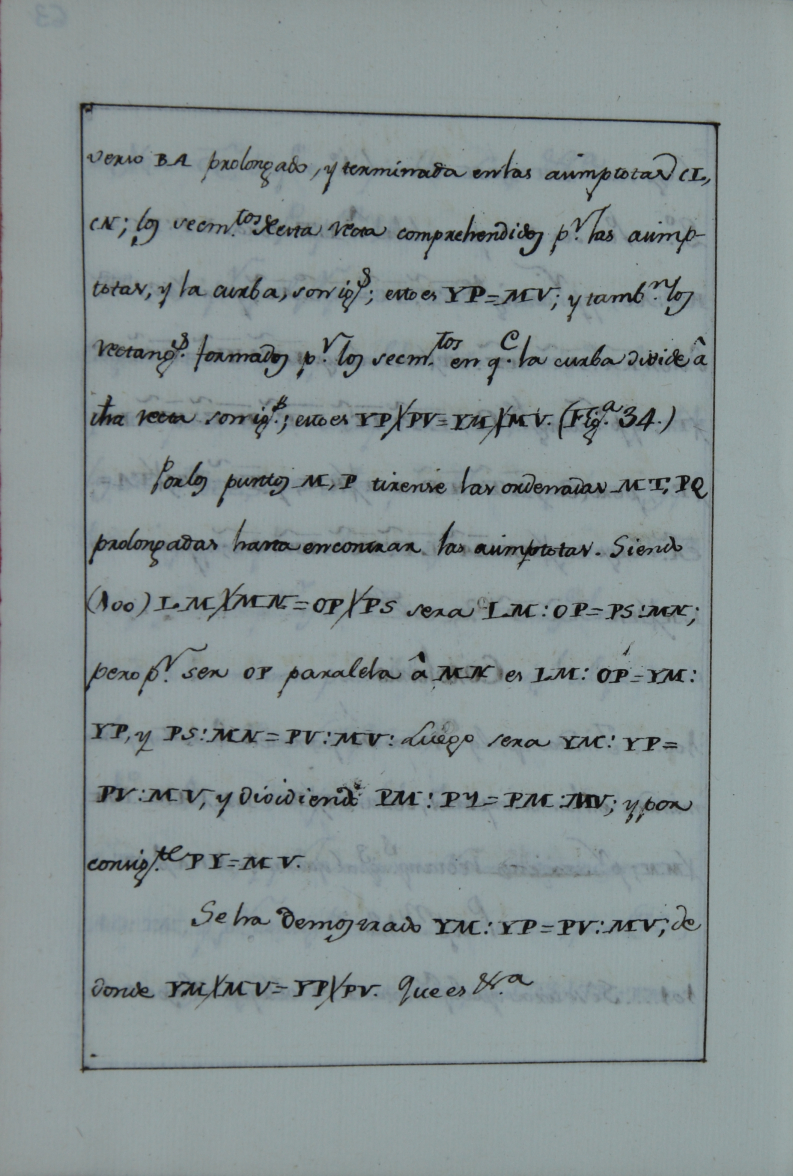 verso BA prolongado, y terminada en las asimptotas CL,
CN; los secm.tos de esta recta comprehendidos p.r las asimp-
totas, y la curba, son ig.s; esto es YP=MV; y tamb.n los
rectang.s formados p.r los secm.tos en q.e la curba divide â
dha recta son ig.s; esto es YP×PV=YM×MV. (Fig.a 34.)
Por los puntos M, P tirense las ordenadas MT, PQ
prolongadas hasta encontrar las asimptotas. Siendo
(100) LM×MN=OP×PS sera LM:OP=PS:MN;
pero p.r ser OP paralela â MN es LM:OP=YM:
YP, y PS:MN=PV:MV: Luego sera YM:YP=
PV:MV, y dividiendo PM:PY=PM:MV; y por
consig.te PY=MV.
Se ha demostrado YM:YP=PV:MV; de
donde YM×MV=YP×PV. Que es &.a